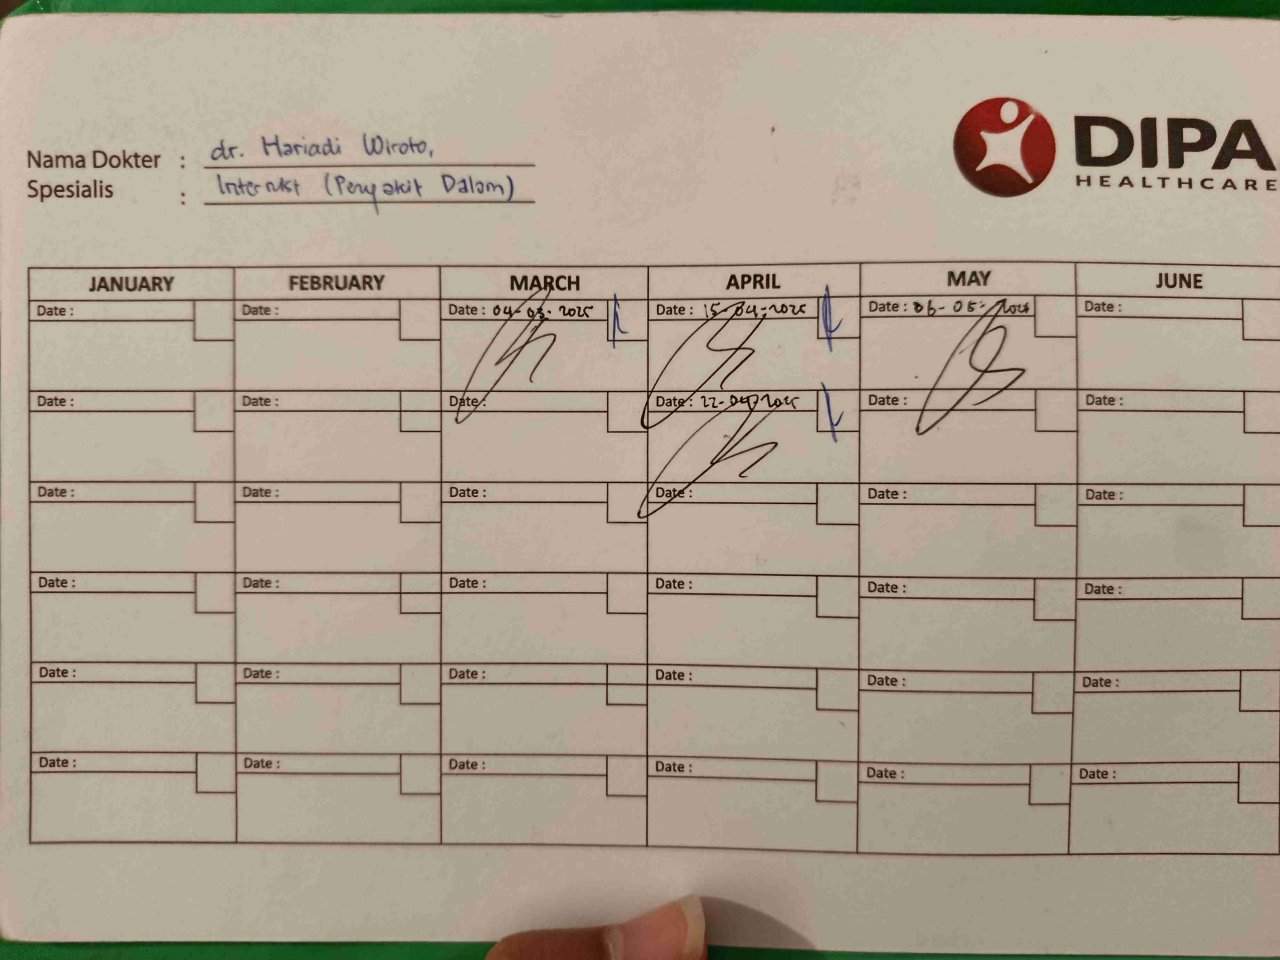 DIPA
HEALTHCARE
Nama Dokter : dr. Hariadi Wiroto,
Spesialis : Internist (Penyakit Dalam)
JANUARY FEBRUARY MARCH APRIL MAY JUNE
Date : Date : Date : 04-03-2025 Date : 15-04-2025 Date : 06-05-2025 Date :
Date : Date : Date : Date : 22-04-2025 Date : Date :
Date : Date : Date : Date : Date : Date :
Date : Date : Date : Date : Date : Date :
Date : Date : Date : Date : Date : Date :
Date : Date : Date : Date : Date : Date :